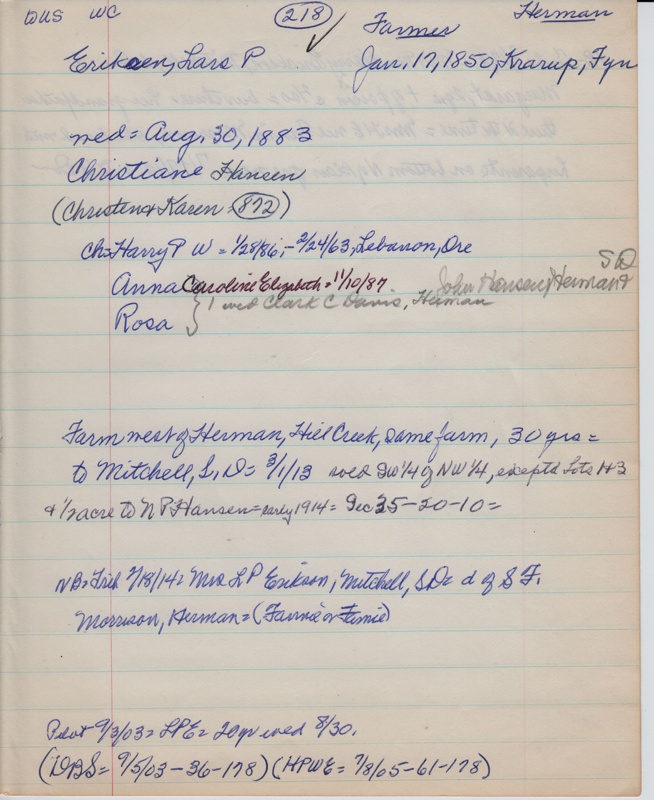 DUS WC 218 Farmer Herman
Eriksen, Lars P Jan. 17, 1850, Krarup, Fyn
wed = Aug. 30, 1883
Christiane Hansen
(Christen & Karen = 872)
Ch = Harry P W = 1/28/86; - 2/24/63, Lebanon, Ore
Anna Caroline Elizabeth = 11/10/87
John Hansen, Herman & SD
Rosa } 1 wed Clark C Davis, Herman
Farm west of Herman, Hill Creek, same farm, 30 yrs =
to Mitchell, S.D = 3/1/13 sold SW 1/4 of NW 1/4, except Lots 1 & 3
& 1/2 acre to N P Hansen = early 1914 = Sec 35-20-10 =
NB = 2/18/14 = Mrs L P Erikson, Mitchell, SD = d of S F.
Morrison, Herman = (Fannie or Femie)
Pilot 9/3/03 = LPE = 20 yr wed 8/30.
(DBS = 9/5/03-36-178) (HPWE = 7/8/65-61-178)